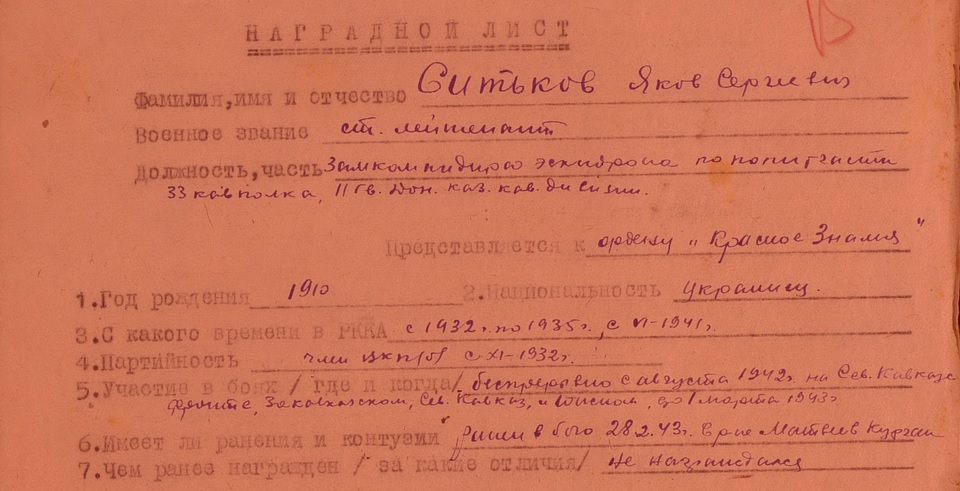 НАГРАДНОЙ ЛИСТ
Фамилия, имя и отчество Ситьков Яков Сергеевич
Военное звание ст. лейтенант
Должность, часть Замкомандира эскадрона по политчасти
33 кавполка, 11 гв. Дон. каз. кав. дивизии.
Представляется к ордену „Красное Знамя"
1. Год рождения 1910 2. Национальность украинец.
3. С какого времени в РККА с 1932 г. по 1935 г., с VI-1941 г.
4. Партийность член ВКП(б) с XI-1932 г.
5. Участие в боях / где и когда/ беспрерывно с августа 1942 г. на Сев. Кавказс
фронте, Закавказском, Сев. Кавказ, и , до 1 марта 1943 г
6. Имеет ли ранения и контузии ранен в бою 28.2.43 г. в р-не Матвеев Курган
7. Чем ранее награжден / за какие отличия/ не награждался